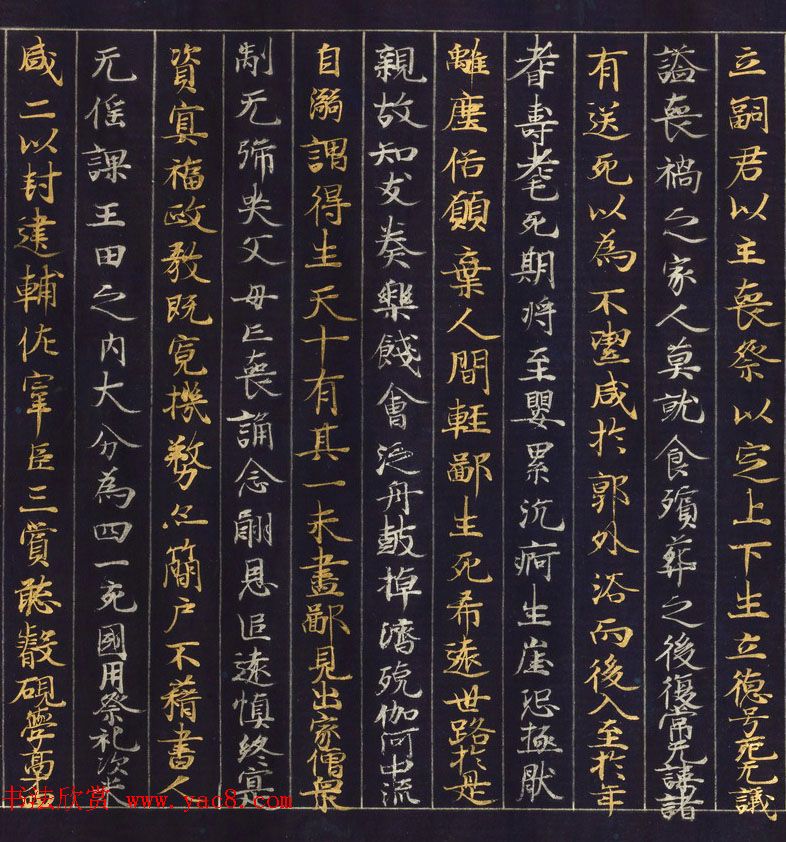 立嗣君以主喪祭以定上下生立德号死无議
謚喪禍之家人莫就食殯葬之後復常无諱諸
有送死以為不㓗咸扵郭外浴而後入至扵年
耆壽耄死期将至嬰累沉痾生崖恐極猒
離塵俗願弃人間輕鄙生死希遠世路扵是
親故知友奏樂餞會泛舟鼓棹濟殑伽河中流
自溺謂得生天十有其一未盡鄙見出家僧衆
制无㖡哭父母亡喪誦念酬恩追遠慎終寔
資冥福政教既寛機務亦簡户不藉書人
无傜課王田之内大分為四一充國用祭祀次出
咸二以封建輔佐宰臣三賞聦叡碩學高
书法欣赏 www.yac8.com